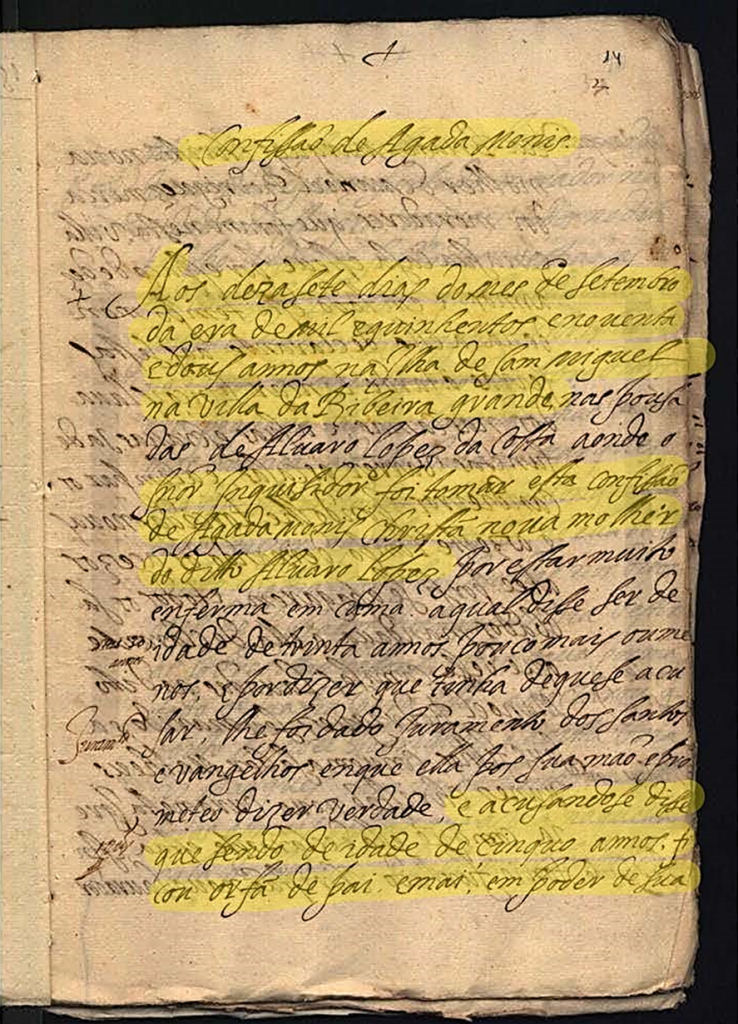 14
Confissaõ de Agada Monis.
Aos dezasete dias do mes de setembro
da era de mil equinhentos. enouenta
edous annos na Ilha de sam Miguel
na villa da Ribeira grande, nas pousa
das de Aluaro Lopez da Costa aonde o
snõr Inquisidor foi tomar esta confissaõ
de Agada monis christã noua molhér
do ditto Aluaro Lopez por estar muito
enferma em cama. aqual disse ser de
idade de trinta annos. pouco mais oume
nos, e por dizer que tinha deque se acu
sar, lhe foi dado Juramento dos santos
Juramento
evangelhos enque ella pos sua maõ e pro
meteo dizer verdade, e acusandose disse
que sendo de idade de cinquo annos. fi
cou orfã de pai. emai, em poder de sua